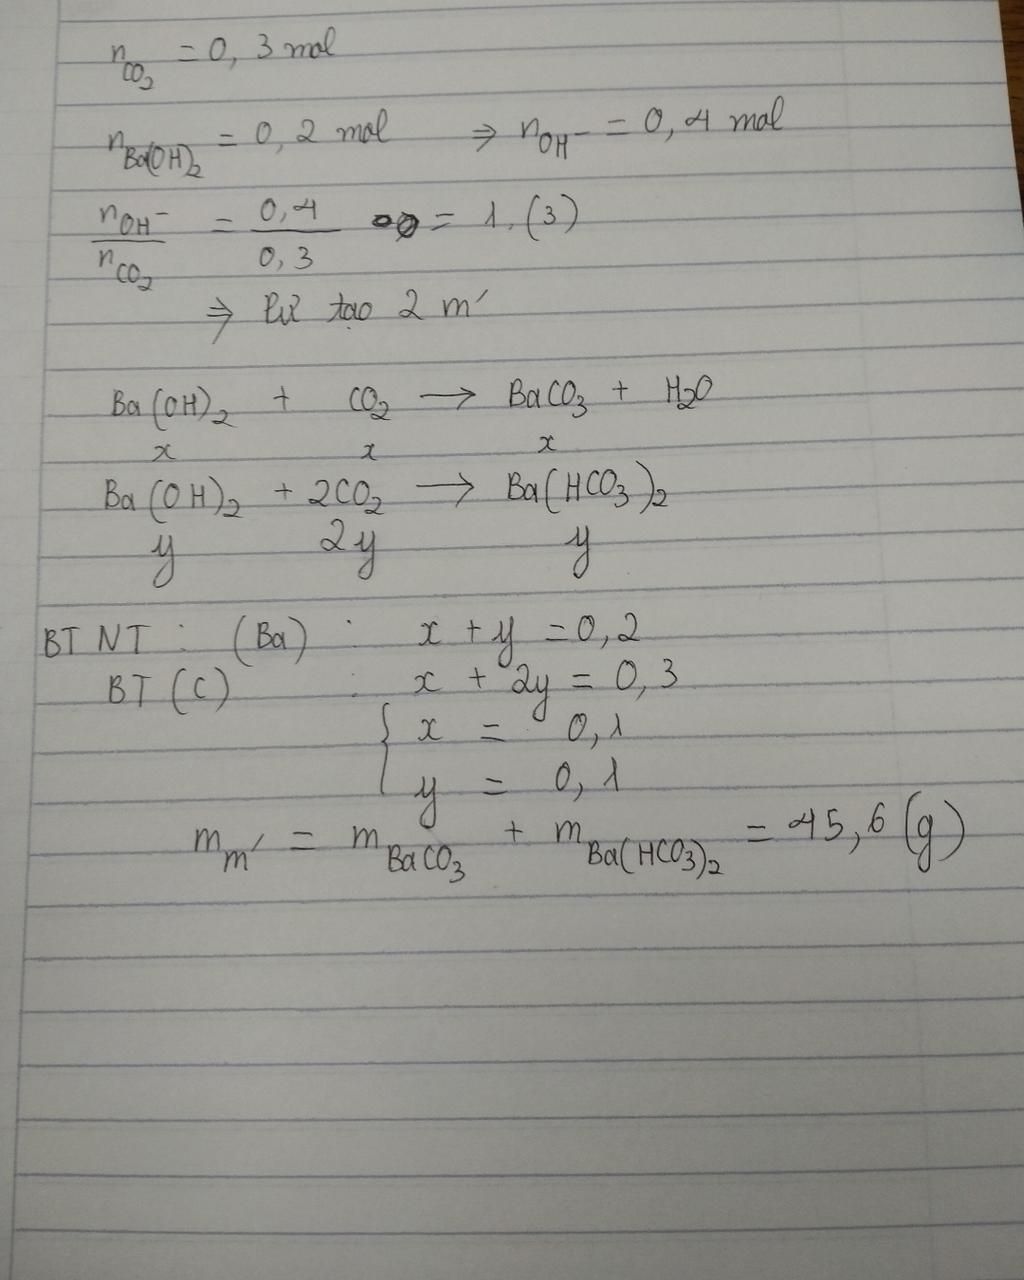 n_CO₂ = 0,3 mol
n_Ba(OH)₂ = 0,2 mol ⇒ n_OH⁻ = 0,4 mol
n_OH⁻ / n_CO₂ = 0,4 / 0,3 = 1,(3)
⇒ Pứ tạo 2 m'
Ba(OH)₂ + CO₂ → BaCO₃ + H₂O
x x x
Ba(OH)₂ + 2CO₂ → Ba(HCO₃)₂
y 2y y
BT NT : (Ba) : x + y = 0,2
BT (C) : x + 2y = 0,3
{ x = 0,1
y = 0,1
m_m' = m_BaCO₃ + m_Ba(HCO₃)₂ = 45,6 (g)